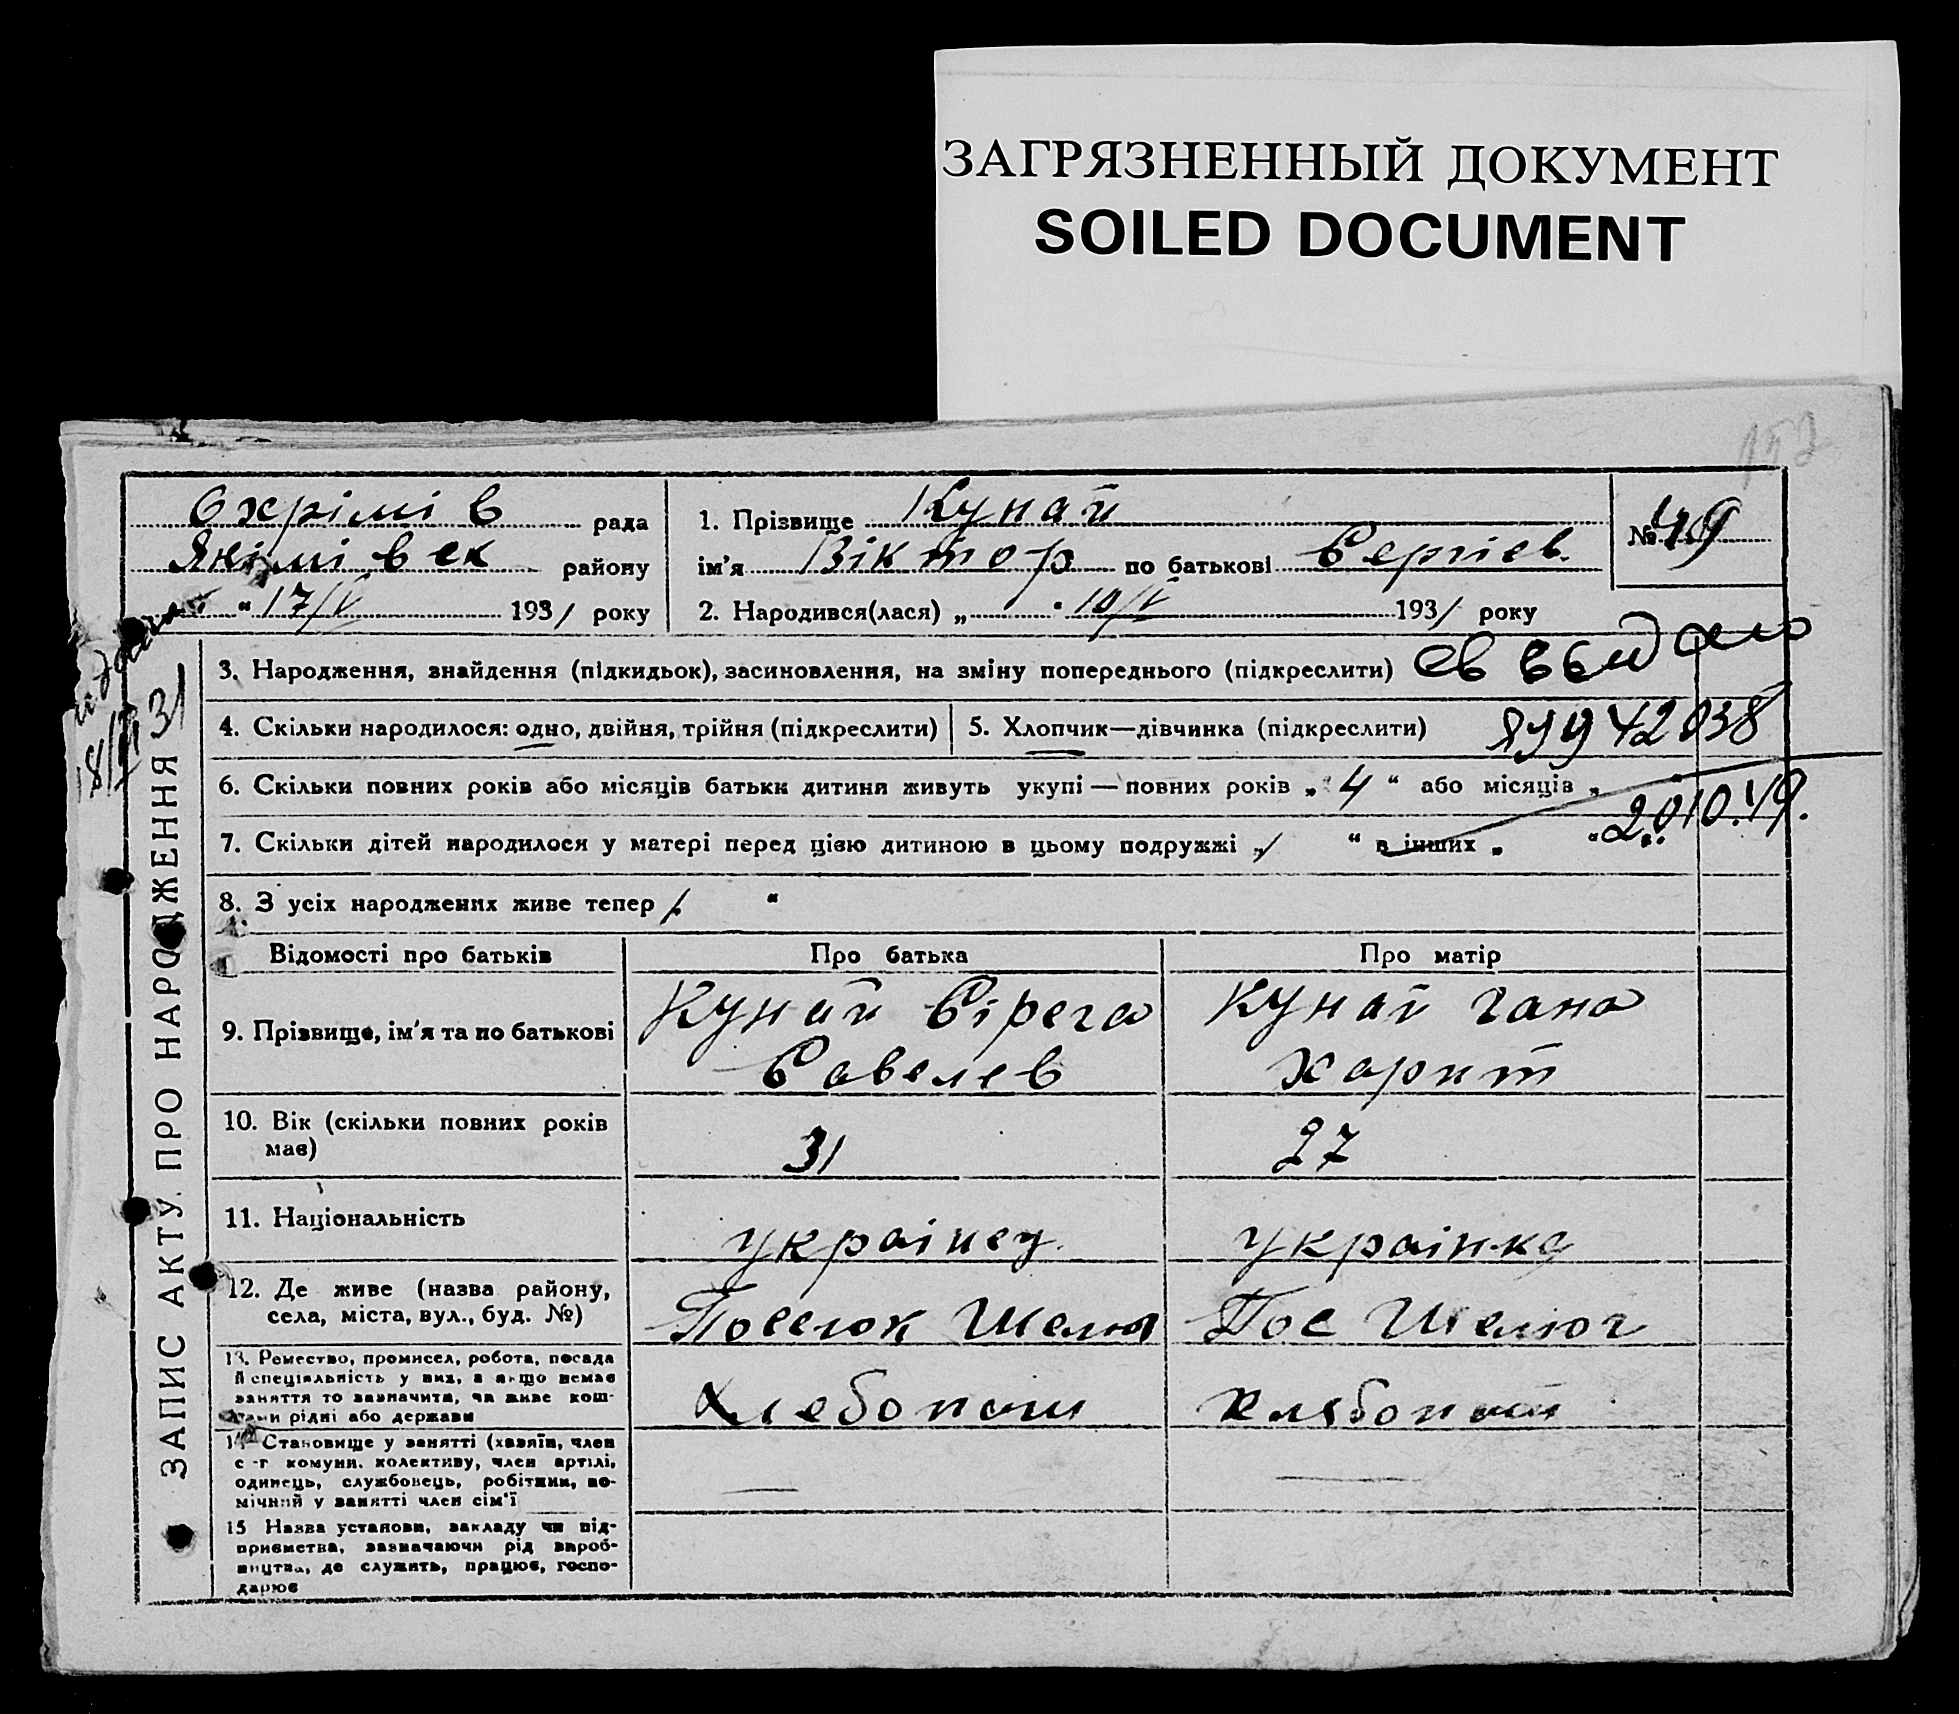 ЗАГРЯЗНЕННЫЙ ДОКУМЕНТ
SOILED DOCUMENT
Охрімів рада
Якімівск району
„ “ 17/V 1931 року
1. Прізвище Кунай
ім'я Віктор по батькові Сергіев.
2. Народився(лася) „ “ 10/V 1931 року
№ 49
ЗАПИС АКТУ ПРО НАРОДЖЕННЯ
3. Народження, знайдення (підкидьок), засиновлення, на зміну попереднього (підкреслити)
св выдано
4. Скільки народилося: одно, двійня, трійня (підкреслити)
5. Хлопчик—дівчинка (підкреслити)
942038
6. Скільки повних років або місяців батьки дитини живуть укупі — повних років „ 4 “ або місяців „
7. Скільки дітей народилося у матері перед цією дитиною в цьому подружжі „ 1 “ в інших „ “
2.010.49.
8. З усіх народжених живе тепер 1. “
Відомості про батьків
Про батька
Про матір
9. Прізвище, ім'я та по батькові
Кунай Сірега
Савелев
Кунай Гана
Харит
10. Вік (скільки повних років
має)
31
27
11. Національність
украінец
украінка
12. Де живе (назва району,
села, міста, вул., буд. №)
Поселок Шелюг
Пос Шелюг
13. Ремество, промисел, робота, посада
й спеціяльність у них, а якщо немає
заняття то зазначита, чи живе кош-
тами рідні або держави
Хлебопаш
Хлебопаш
14. Становище у занятті (хазяїн, член
с-г комуни, колективу, член артілі,
одинець, службовець, робітник, по-
мічний у занятті член сім'ї
— —
15 Назва установи, закладу чи під-
приємства, зазначаючи рід вироб-
ництва, де служить, працює, госпо-
дарює